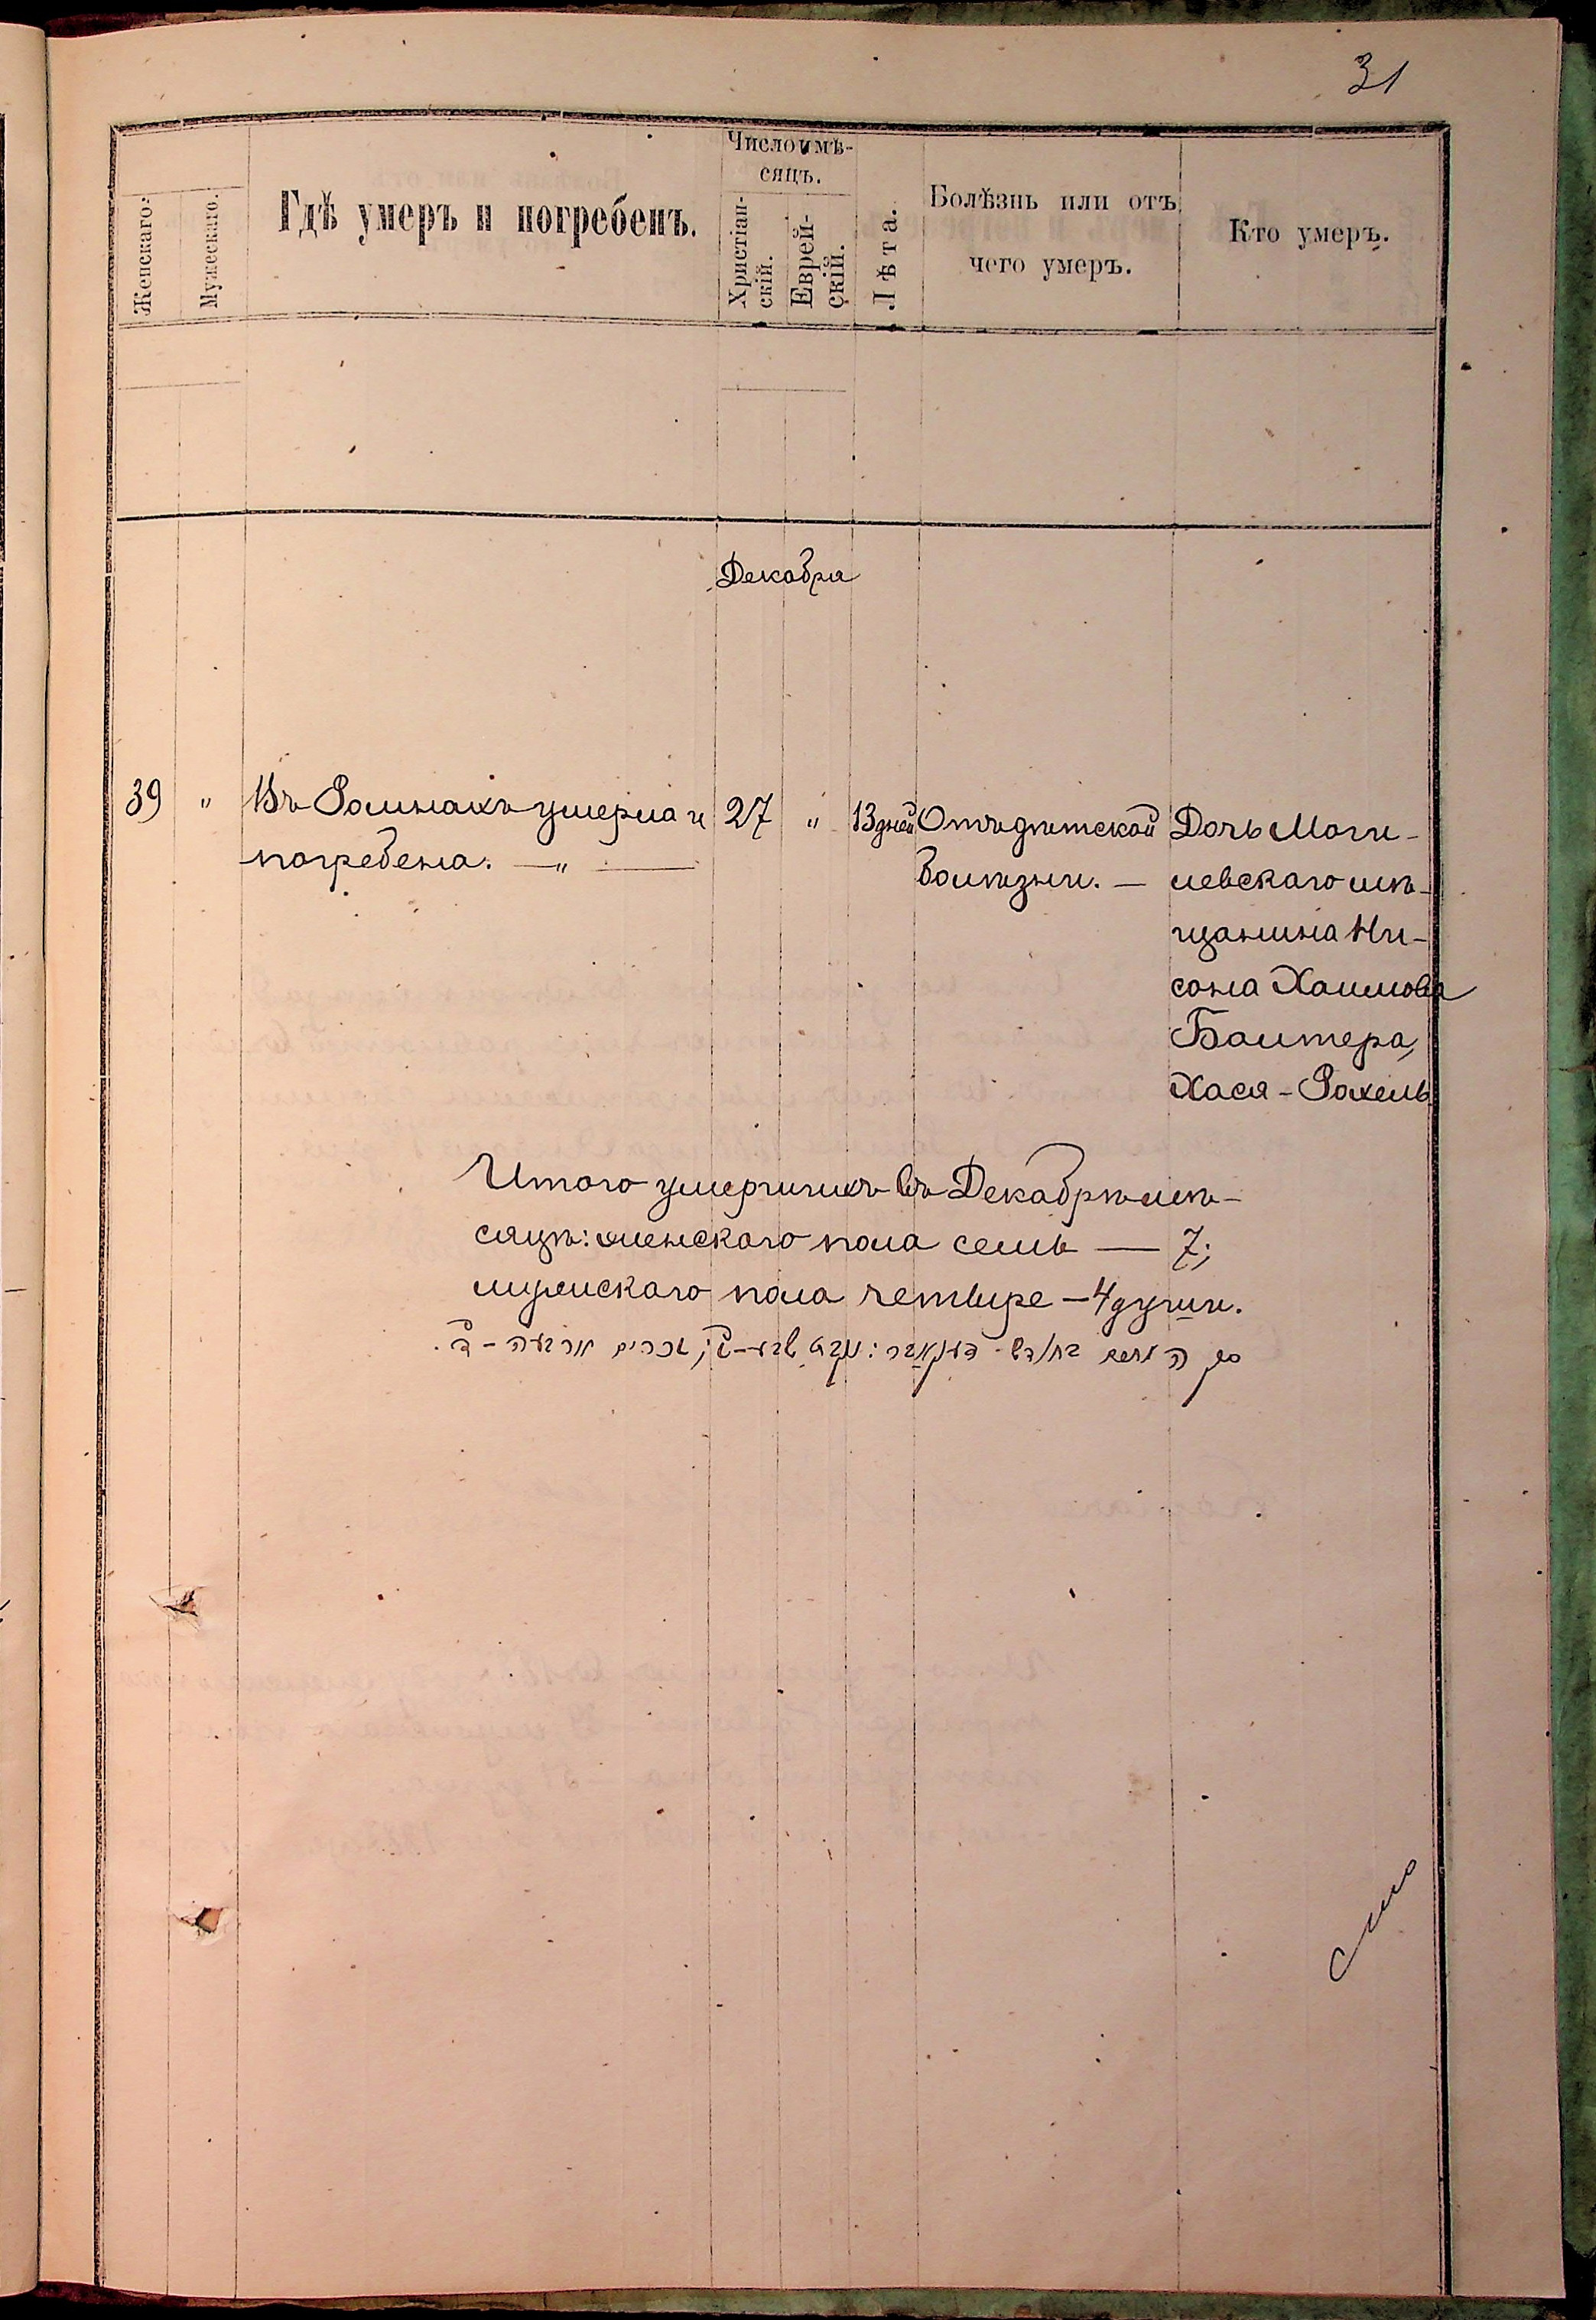 31
Число и мѣ-
сяцъ.
Женскаго.
Мужескаго.
Гдѣ умеръ и погребенъ.
Христіан-
скій.
Еврей-
скій.
Лѣта.
Болѣзнь или отъ
чего умеръ.
Кто умеръ.
Декабря
39 " Въ Ромнахъ умерла и 27 " 13 дней Отъ дѣтской Дочь Моги-
погребена. —"— болѣзни. — левскаго мѣ-
щанина Ни-
сона Хаимова
Балтера,
Хася-Рохель
Итого умершихъ въ Декабрѣ мѣ-
сяцѣ: женскаго пола семь — 7;
мужескаго пола четыре — 4 души.